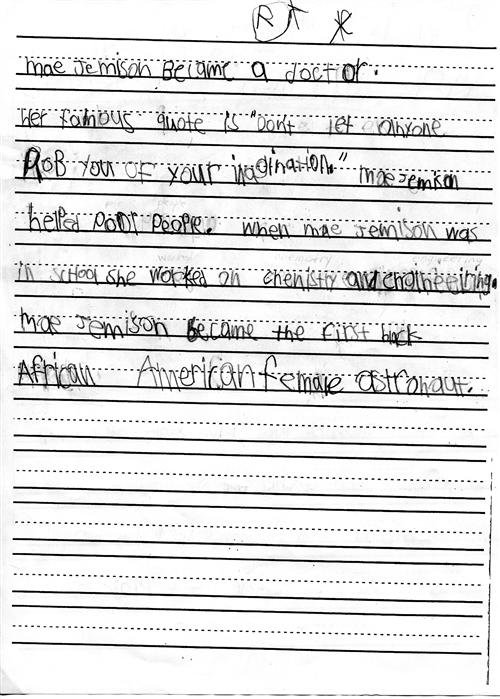 R
mae Jemison Became a doctor.
Her famous quote is "Don't let anyone
ROB YOU OF YOUR imagination." mae Jemison
helped poor people. when mae Jemison was
in school she worked on chemistry and engineering.
mae Jemison became the first black
African American female astronaut.